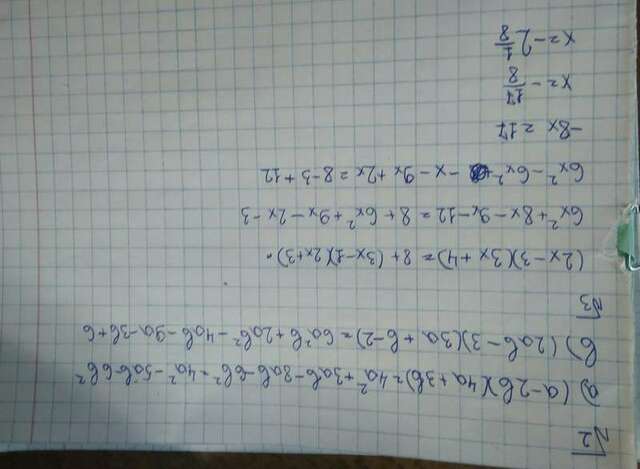 №2
а) (a-2b)(4a+3b)=4a²+3ab-8ab-6b²=4a²-5ab-6b²
б) (2ab-3)(3a+b-2)=6a²b+2ab²-4ab-9a-3b+6
№3
(2x-3)(3x+4)=8+(3x-1)(2x+3).
6x²+8x-9x-12=8+6x²+9x-2x-3
6x²-6x² -x-9x+2x=8-3+12
-8x=17
x=-17/8
x=-2 1/8